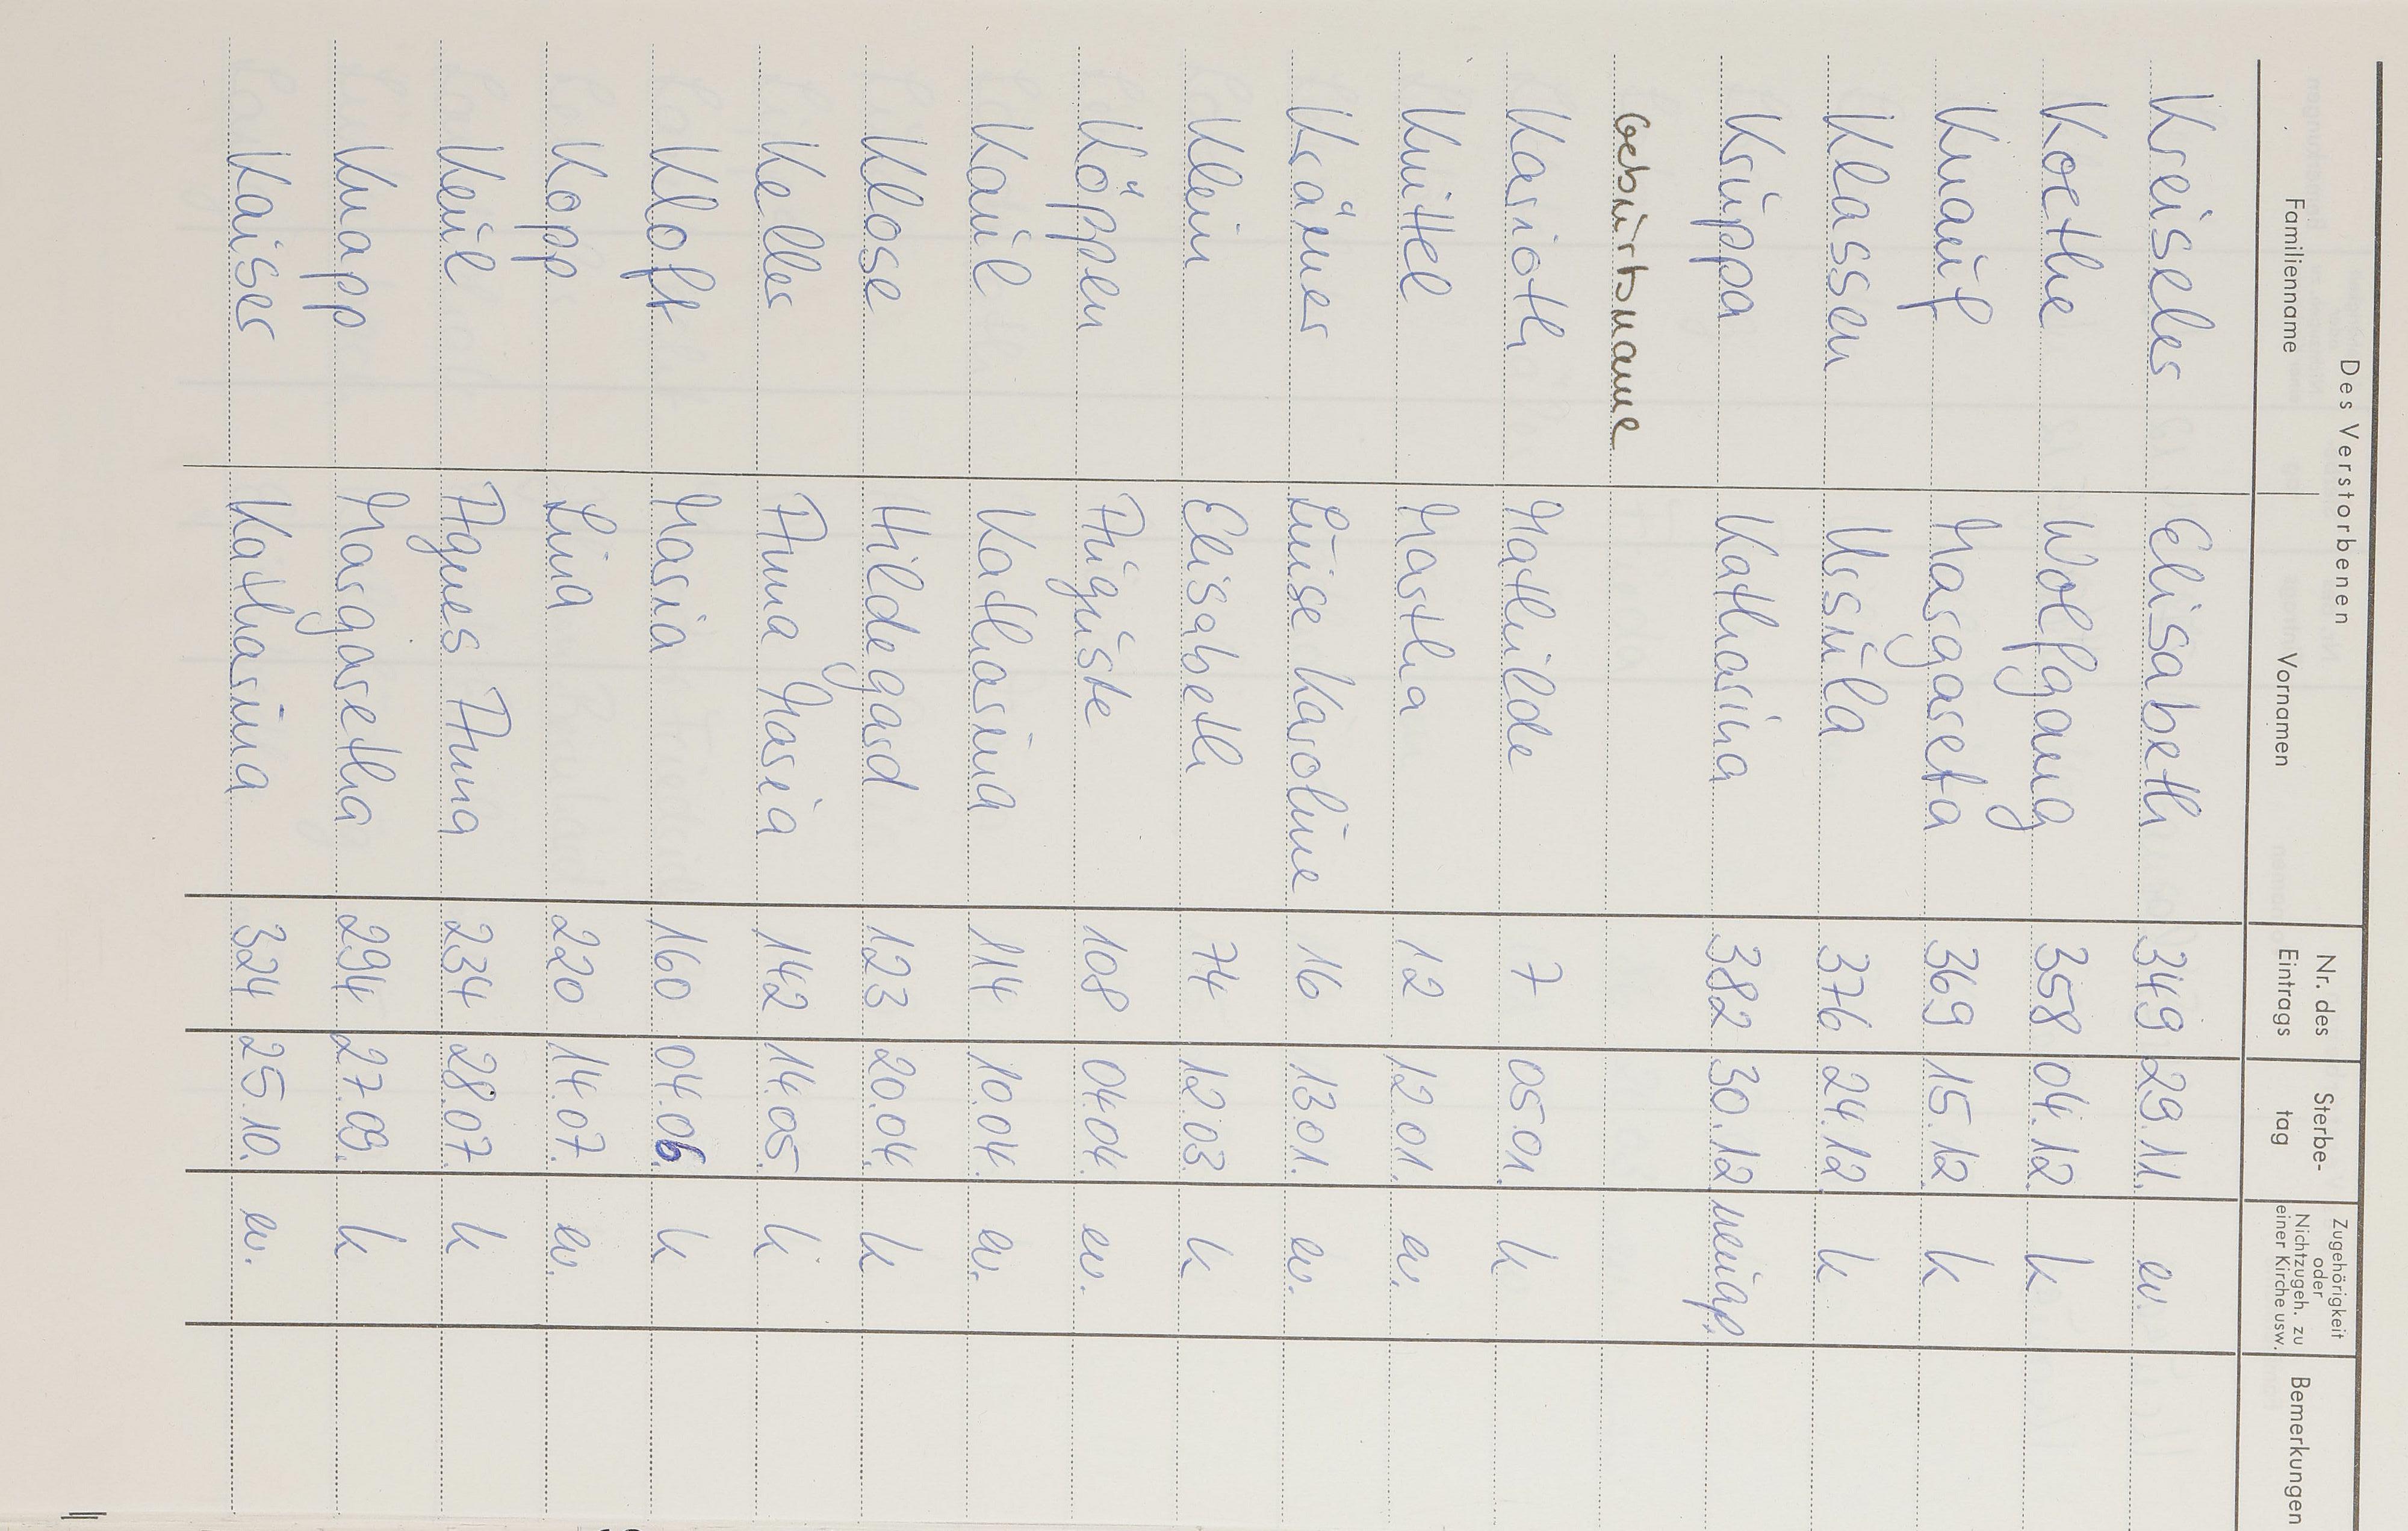 Des Verstorbenen
Familienname Vornamen Nr. des Eintrags Sterbe-tag Zugehörigkeit oder Nichtzugeh. zu einer Kirche usw. Bemerkungen
Kreiseler Elisabeth 349 29.11. ev.
Koethe Wolfgang 358 04.12. k
Knauf Margareta 369 15.12. k
Klassen Ursula 376 24.12. k
Kruppa Katharina 382 30.12. neuap.
Geburtsname
Karioth Mathilde 7 05.01. k
Knittel Martha 12 12.01. ev.
Krämer Luise Karoline 16 13.01. ev.
Klein Elisabeth 74 12.03. k
Köppen Auguste 108 04.04. ev.
Kaul Katharina 114 10.04. ev.
Klose Hildegard 123 20.04. k
Keller Anna Maria 142 14.05. k
Kloft Maria 160 04.06. k
Kopp Lina 220 14.07. ev.
Keul Agnes Anna 234 28.07. k
Knapp Margaretha 294 27.09. k
Kaiser Katharina 324 25.10. ev.